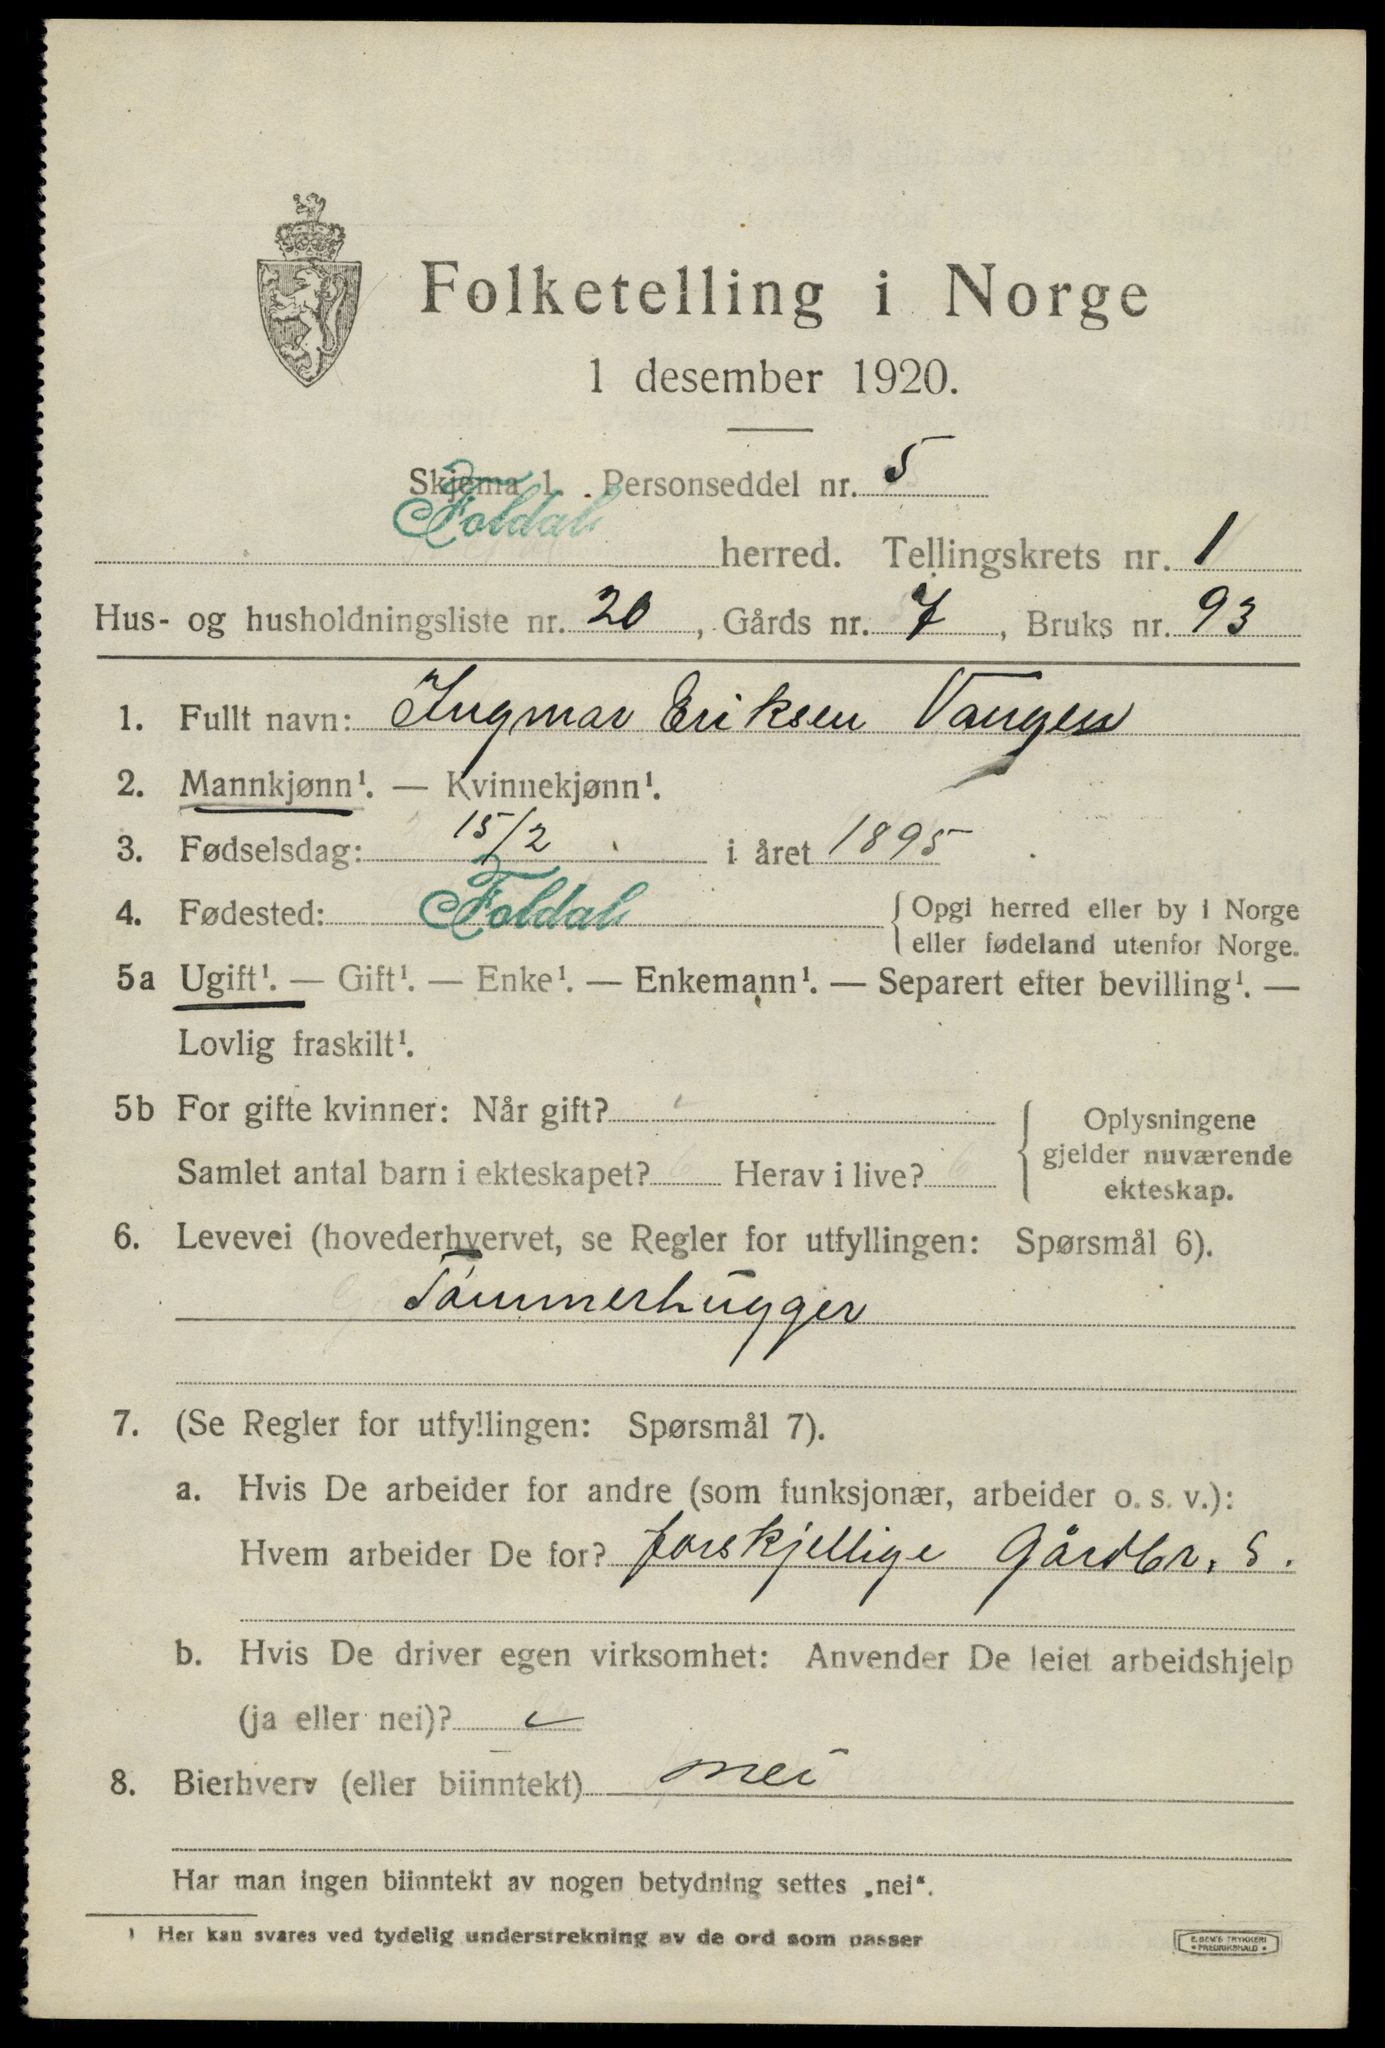 Folketelling i Norge
1 desember 1920.
Skjema 1. Personseddel nr. 5
Foldal herred. Tellingskrets nr. 1
Hus- og husholdningsliste nr. 20, Gårds nr. 7, Bruks nr. 93
1. Fullt navn: Ingmar Eriksen Vangen
2. Mannkjønn¹. — Kvinnekjønn¹.
3. Fødselsdag: 15/2 i året 1895
4. Fødested: Foldal { Opgi herred eller by i Norge
eller fødeland utenfor Norge.
5a Ugift¹. — Gift¹. — Enke¹. — Enkemann¹. — Separert efter bevilling¹. —
Lovlig fraskilt¹.
5b For gifte kvinner: Når gift?
Samlet antal barn i ekteskapet? Herav i live?
{ Oplysningene
gjelder nuværende
ekteskap.
6. Levevei (hovederhvervet, se Regler for utfyllingen: Spørsmål 6).
Tømmerhugger
7. (Se Regler for utfyllingen: Spørsmål 7).
a. Hvis De arbeider for andre (som funksjonær, arbeider o. s. v.):
Hvem arbeider De for? forskjellige Gårdbr. s.
b. Hvis De driver egen virksomhet: Anvender De leiet arbeidshjelp
(ja eller nei)?
8. Bierhverv (eller biinntekt) nei
Har man ingen biinntekt av nogen betydning settes „nei“.
¹ Her kan svares ved tydelig understrekning av de ord som passer
E. SEM'S TRYKKERI
• FREDRIKSHALD •